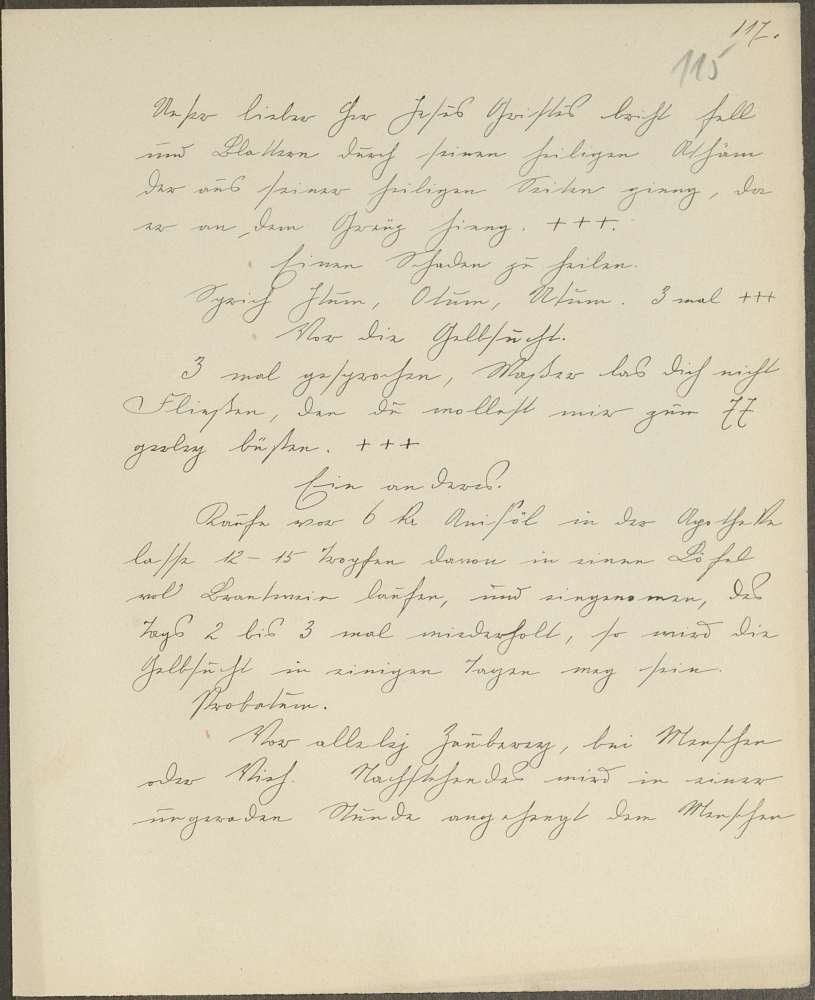 117.
115
Unser lieber Her Jesus Christus bricht fell
und Blattern durch seinen heiligen Athäm
der aus seiner heiligen Seiten gieng, da
er an dem Greuz hieng. +++.
Einen Schaden zu heilen.
Sprich Itum, Otum, Utum. 3 mal +++
Vor die Gelbsucht.
3 mal gesprochen, Waßer las dich nicht
Fließen, den du wollest mir zum 77
gerley büßen. +++
Ein anderes.
Kaufe vor 6 Kr Anisöl in der Apotheke
lasse 12 - 15 Tropfen davon in einen Löfel
vol Brantwein laufen, und eingenomen, des
Tags 2 bis 3 mal wiederholt, so wird die
Gelbsucht in einigen Tagen weg sein.
Probatum.
Vor allelej Zauberey, bei Menschen
oder Vieh. Nachstehendes wird in einer
ungeraden Stunde angehengt dem Menschen